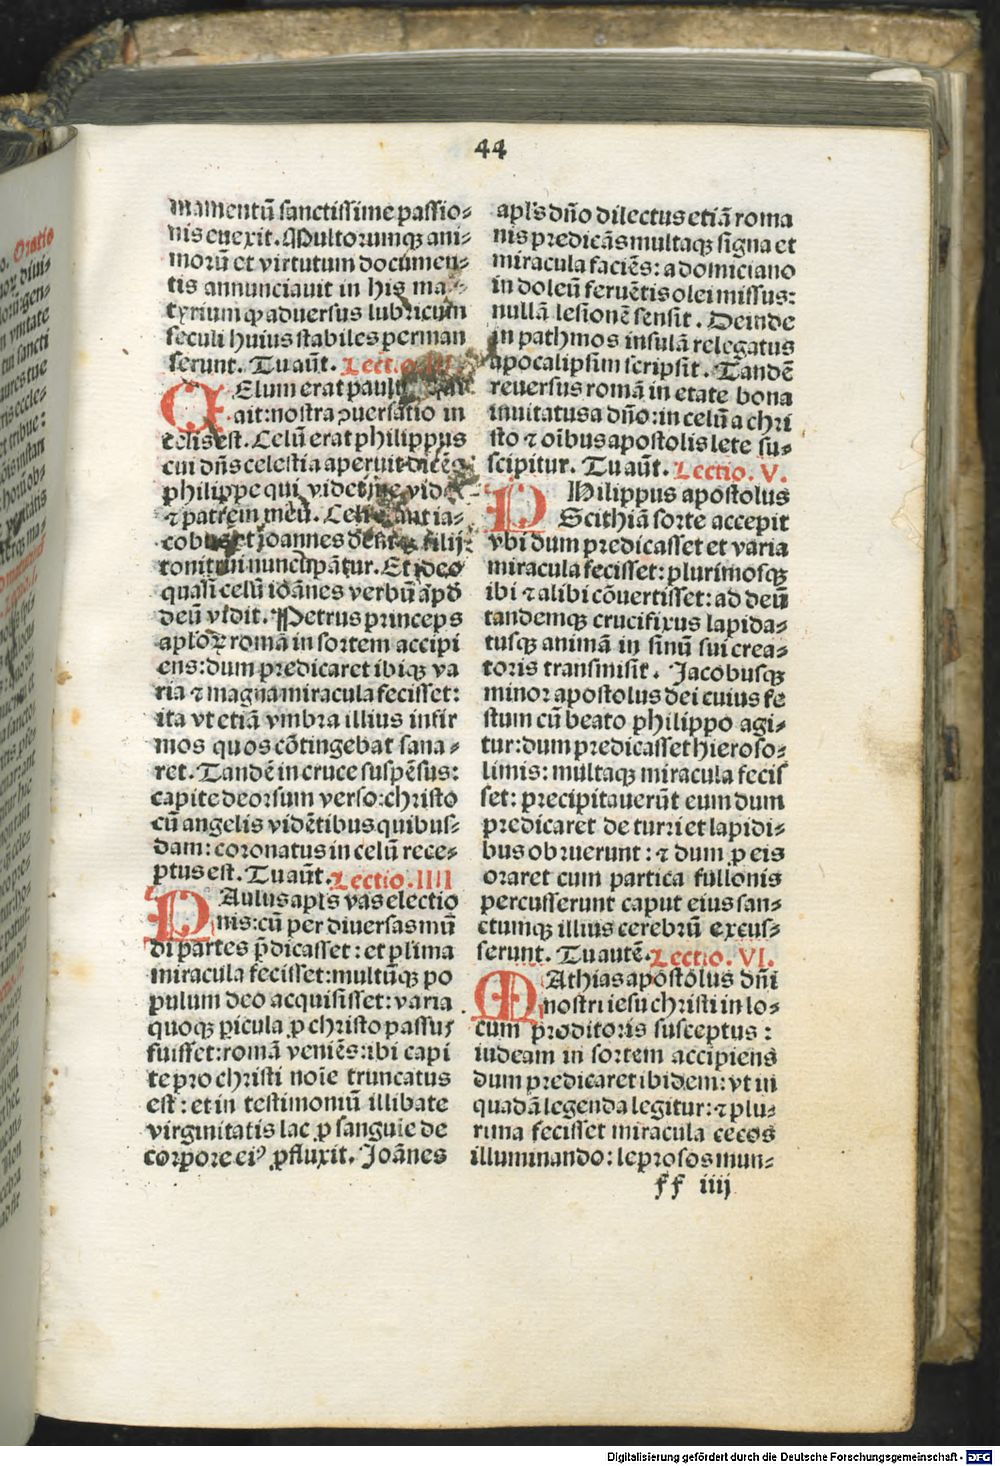 44
mamentū sanctissime passio⸗
nis euexit. Multorumqꝫ ani⸗
morū et virtutum documen⸗
tis annunciauit in his ma⸗
tyrium ꝙ aduersus lubricum
seculi huius stabiles perman
serunt. Tu aūt. Lectio. III.
CElum erat paulꝰ
ait: nostra ꝯuersatio in
celis est. Celū erat philippus
cui dn̄s celestia aperuit dicēs
philippe qui videt me videt
⁊ patrem meū. Celi erant ia⸗
cobus et joannes deniqꝫ filij
tonitrui nuncupātur. Et ideo
quasi celū ioānes verbū apđ
deū vidit. Petrus princeps
aploꝝ romā in sortem accipi
ens: dum predicaret ibiqꝫ va
ria ⁊ magna miracula fecisset:
ita vt etiā vmbra illius infir
mos quos cōtingebat sana⸗
ret. Tandē in cruce suspēsus:
capite deorsum verso: christo
cū angelis vidētibus quibus⸗
dam: coronatus in celū rece⸗
ptus est. Tu aūt. Lectio. IIII
PAulus apl̄s vas electio
nis: cū per diuersas mū
di partes p̄dicasset: et pl̄ima
miracula fecisset: multūqꝫ po
pulum deo acquisisset: varia
quoqꝫ ꝑicula ꝓ christo passus
fuisset: romā veniēs: ibi capi
te pro christi noīe truncatus
est: et in testimoniū illibate
virginitatis lac ꝓ sanguīe de
corpore eiꝰ ꝓfluxit. Joānes
apl̄s dn̄o dilectus etiā roma
nis predicās multaqꝫ signa et
miracula faciēs: a domiciano
in doleū feruētis olei missus:
nullā lesionē sensit. Deinde
in pathmos insulā relegatus
apocalipsim scripsit. Tandē
reuersus romā in etate bona
inuitatus a dn̄o: in celū a chri
sto ⁊ oībus apostolis lete su⸗
scipitur. Tu aūt. Lectio. V.
PHilippus apostolus
Scithiā sorte accepit
vbi dum predicasset et varia
miracula fecisset: plurimosqꝫ
ibi ⁊ alibi cōuertisset: ad deū
tandemqꝫ crucifixus lapida⸗
tusqꝫ animā in sinū sui crea⸗
toris transmisit. Jacobusqꝫ
minor apostolus dei cuius fe
stum cū beato philippo agi⸗
tur: dum predicasset hieroso⸗
limis: multaqꝫ miracula fecis
set: precipitauerūt eum dum
predicaret de turri et lapidi⸗
bus obruerunt: ⁊ dum ꝓ eis
oraret cum partica fullonis
percusserunt caput eius san⸗
ctumqꝫ illius cerebrū excus⸗
serunt. Tu autē. Lectio. VI.
MAthias apostolus dn̄i
nostri iesu christi in lo⸗
cum proditoris susceptus:
iudeam in sortem accipiens
dum predicaret ibidem: vt in
quadā legenda legitur: ⁊ plu⸗
rima fecisset miracula cecos
illuminando: leprosos mun⸗
ff iiij
Digitalisierung gefördert durch die Deutsche Forschungsgemeinschaft - DFG